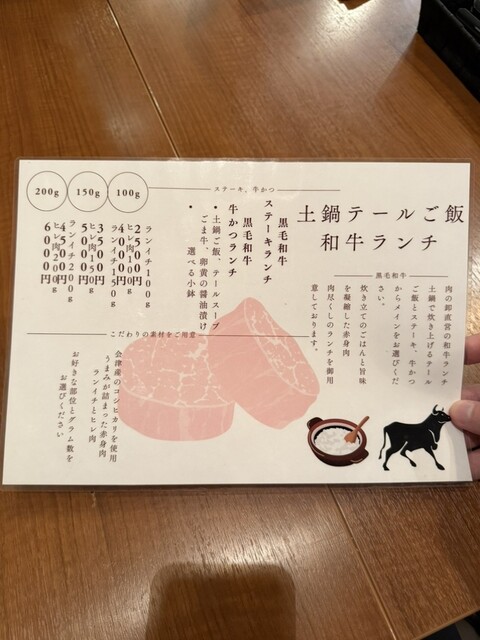 土鍋テールご飯
和牛ランチ
黒毛和牛
肉の卸直営の和牛ランチ
土鍋で炊き上げるテール
ご飯とステーキ、牛かつ
からメインをお選びくだ
さい。
炊き立てのごはんと旨味
を凝縮した赤身肉
肉尽くしのランチを御用
意しております。
ステーキ、牛かつ
黒毛和牛
ステーキランチ
黒毛和牛
牛かつランチ
・土鍋ご飯、テールスープ
ごま牛、卵黄の醤油漬け
・選べる小鉢
100g
150g
200g
ランイチ100g
2500円
ヒレ肉100g
4000円
ランイチ150g
3500円
ヒレ肉150g
5000円
ランイチ200g
4500円
ヒレ肉200g
6000円
こだわりの素材をご用意
会津産のコシヒカリを使用
うまみが詰まった赤身肉
ランイチとヒレ肉
お好きな部位とグラム数を
お選びください